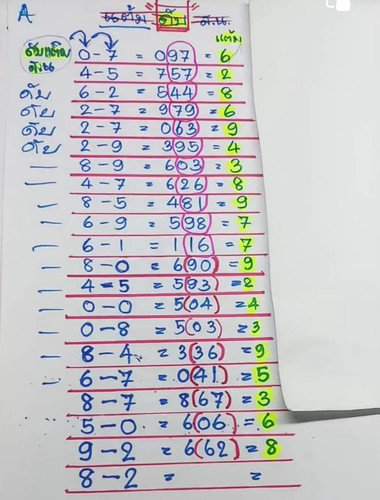 A ดับ
แต้ม
ดับแต้ม
0-7 = 097 = 6
4-5 = 757 = 2
ดับ 6-2 = 544 = 8
ดับ 2-7 = 979 = 6
ดับ 2-7 = 063 = 9
ดับ 2-9 = 395 = 4
— 8-9 = 603 = 3
— 4-7 = 626 = 8
— 8-5 = 481 = 9
— 6-9 = 598 = 7
— 6-1 = 116 = 7
— 8-0 = 6(90) = 9
— 4-5 = 5(93) = 2
— 0-0 = 5(04) = 4
— 0-8 = 5(03) = 3
— 8-4 = 3(36) = 9
— 6-7 = 0(41) = 5
8-7 = 8(67) = 3
5-0 = 6(06) = 6
9-2 = 6(62) = 8
8-2 = =